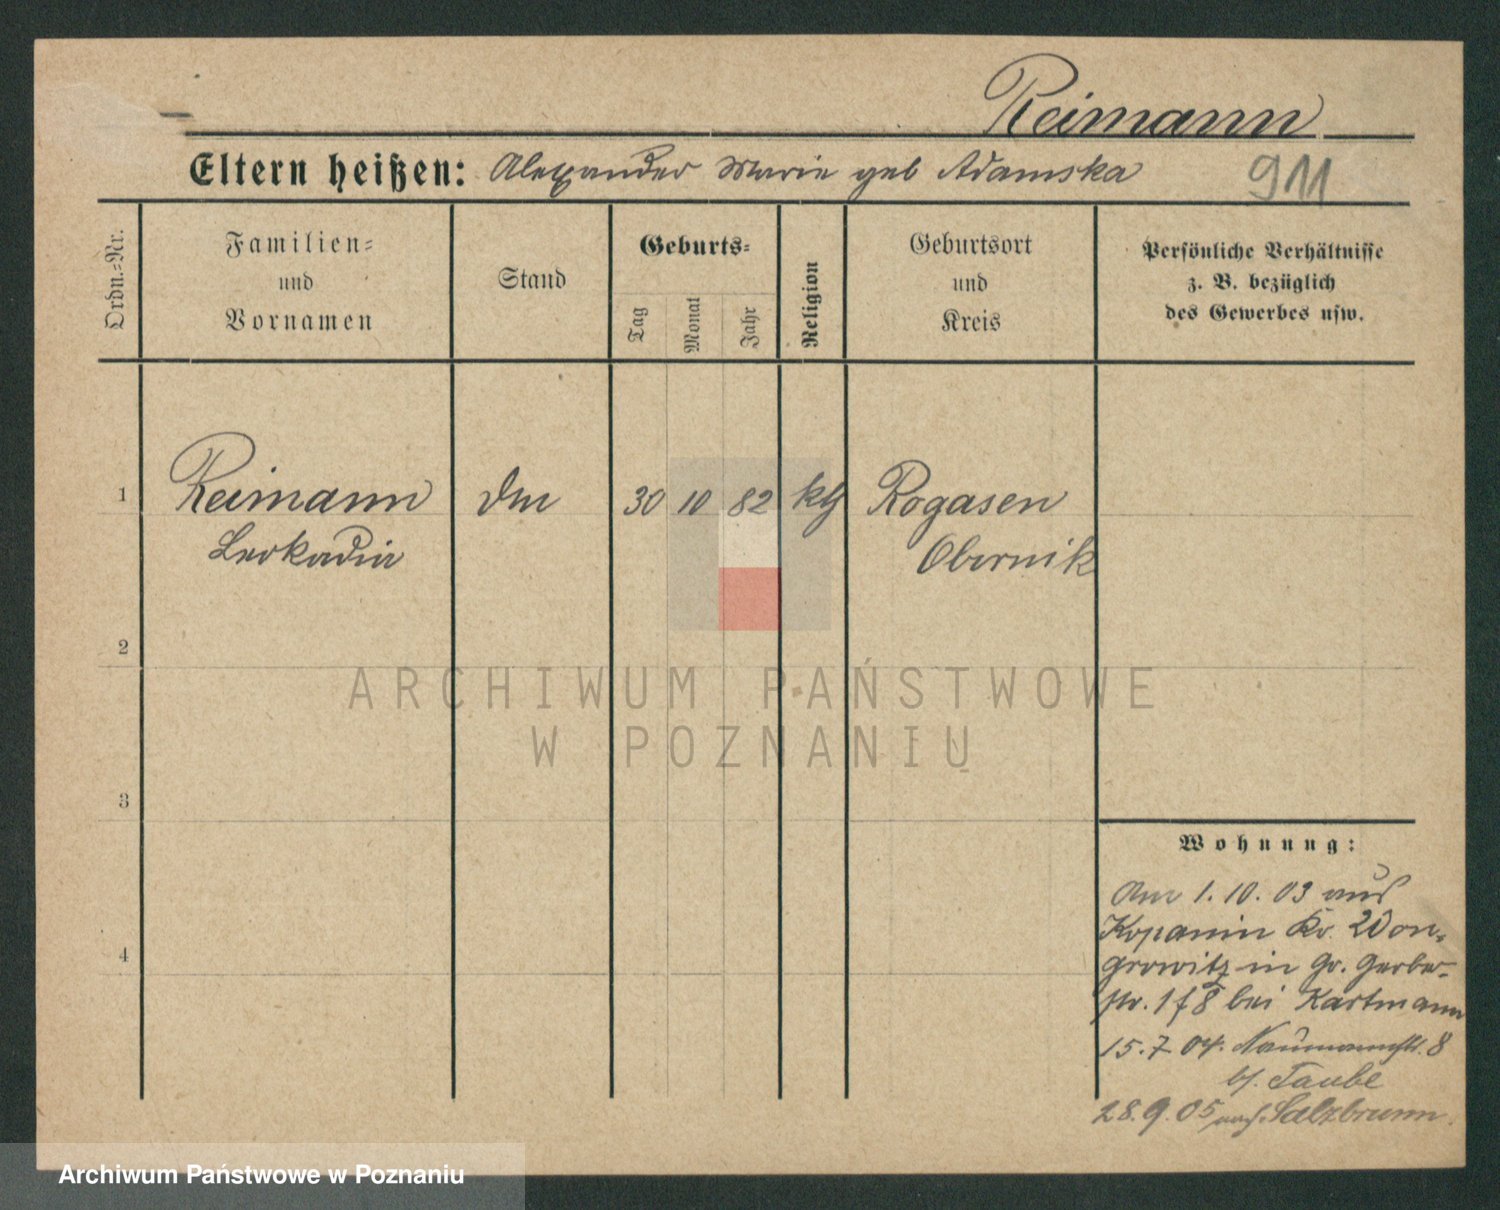 Reimann
Eltern heißen: Alexander Marie geb Adamska
911
Ordn.=Nr.
Familien=
und
Vornamen
Stand
Geburts=
Tag
Monat
Jahr
Religion
Geburtsort
und
Kreis
Persönliche Verhältnisse
z. B. bezüglich
des Gewerbes usw.
1 Reimann 30 10 82 kth Rogasen
Leokadia Obernik
2
3
4
Wohnung:
Am 1. 10. 03 aus
Kopanin Kr. Won-
growitz in Gr. Gerber-
str. bei Kartmann
15. 7. 04. Naumannstr. 8
b/. Taube
28. 9. 05 nach Salzbrunn.
ARCHIWUM PAŃSTWOWE
W POZNANIU
Archiwum Państwowe w Poznaniu